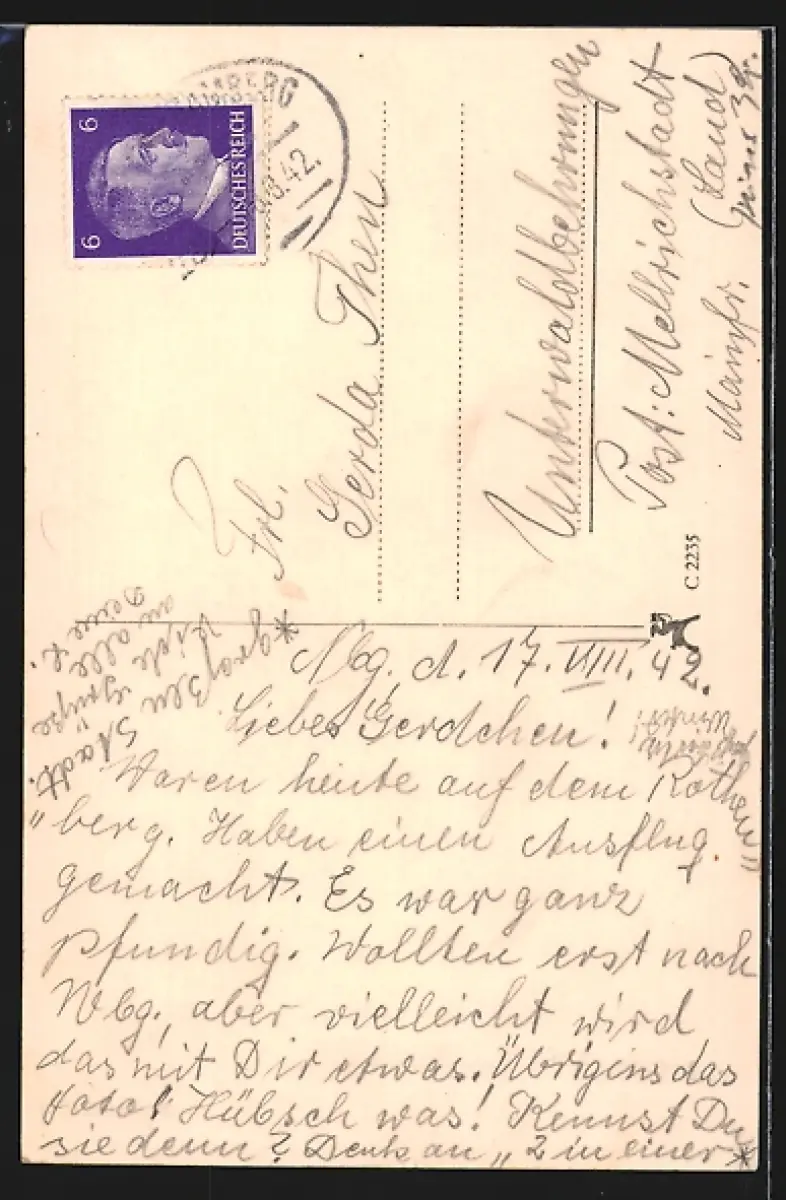 6 6
DEUTSCHES REICH
8.42.
Frl.
Gerda Then
Unterwaldbehrungen
Post: Mellrichstadt
(Land)
Mainfr.
C 2235
Nbg, d. 17. VIII. 42.
Liebes Gerdchen!
Waren heute auf dem "Rothen
berg". Haben einen Ausflug
gemacht. Es war ganz
pfundig. Wollten erst nach
Wbg., aber vielleicht wird
das mit Dir etwas. Übrigens das
Foto! Hübsch was! Kennst Du
sie denn? Denk an "2 in einer*
*großen Stadt."
Viele Grüße
an alle
Deine